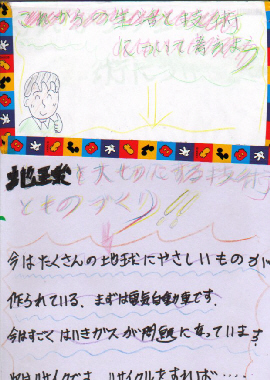 これからの生活と技術
について考えよう
地球を大切にする技術
とものづくり!!
今はたくさんの地球にやさしいものが
作られている。まずは電気自動車です。
今はすごくはいきガスが問題になっています。
リサイクルをすれば・・・・